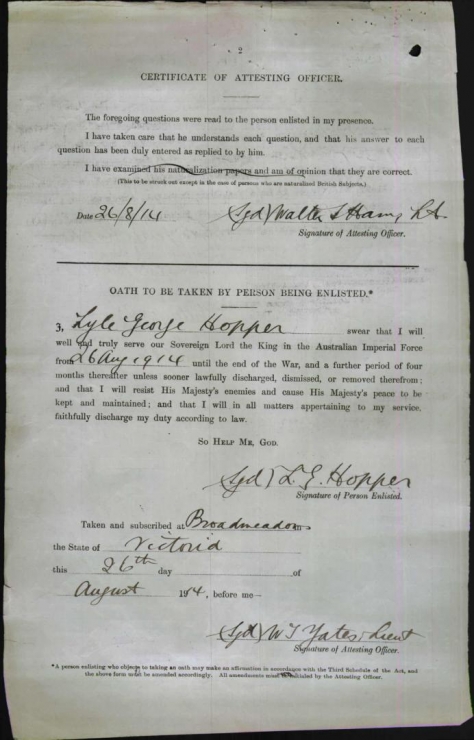 2
CERTIFICATE OF ATTESTING OFFICER.
The foregoing questions were read to the person enlisted in my presence.
I have taken care that he understands each question, and that his answer to each
question has been duly entered as replied to by him.
I have examined his naturalization papers and am of opinion that they are correct.
(This to be struck out except in the case of persons who are naturalized British Subjects.)
Date 26/8/14 Sgd) Walter S
Signature of Attesting Officer.
OATH TO BE TAKEN BY PERSON BEING ENLISTED.*
3, Lyle George Hopper swear that I will
well and truly serve our Sovereign Lord the King in the Australian Imperial Force
from 26 Aug 1914 until the end of the War, and a further period of four
months thereafter unless sooner lawfully discharged, dismissed, or removed therefrom;
and that I will resist His Majesty's enemies and cause His Majesty's peace to be
kept and maintained; and that I will in all matters appertaining to my service,
faithfully discharge my duty according to law.
SO HELP ME, GOD.
Sgd) L. G. Hopper
Signature of Person Enlisted.
Taken and subscribed at Broadmeadows
the State of Victoria
this 26th day of
August 1914, before me—
Sgd) W J Yates Lieut
Signature of Attesting Officer.
*A person enlisting who objects to taking an oath may make an affirmation in accordance with the Third Schedule of the Act, and
the above form must be amended accordingly. All amendments must be initialed by the Attesting Officer.